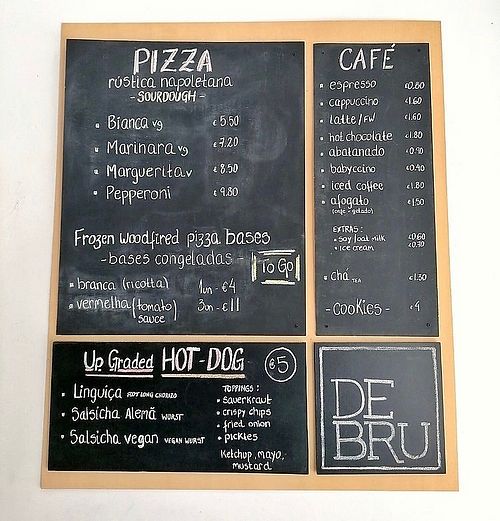 PIZZA
rústica napoletana
- SOURDOUGH -
Bianca vg €5.50
Marinara vg €7.20
Marguerita v €8.50
Pepperoni €9.80
Frozen woodfired pizza bases
- bases congeladas -
To Go
branca (ricotta) 1un - €4
vermelha (tomato sauce) 3un - €11
CAFÉ
espresso €0.80
cappuccino €1.60
latte/FW €1.60
hot chocolate €1.80
abatanado €0.90
babyccino €0.40
iced coffee €1.80
afogato €1.50
(café + gelado)
EXTRAS:
soy/oat milk €0.60
ice cream
cha TEA €1.30
- COOKIES - €4
Up Graded HOT-DOG €5
Linguiça
Salsicha Alemã WURST
Salsicha vegan VEGAN WURST
TOPPINGS:
sauerkraut
crispy chips
fried onion
pickles
Ketchup, mayo,
mustard
DE
BRU